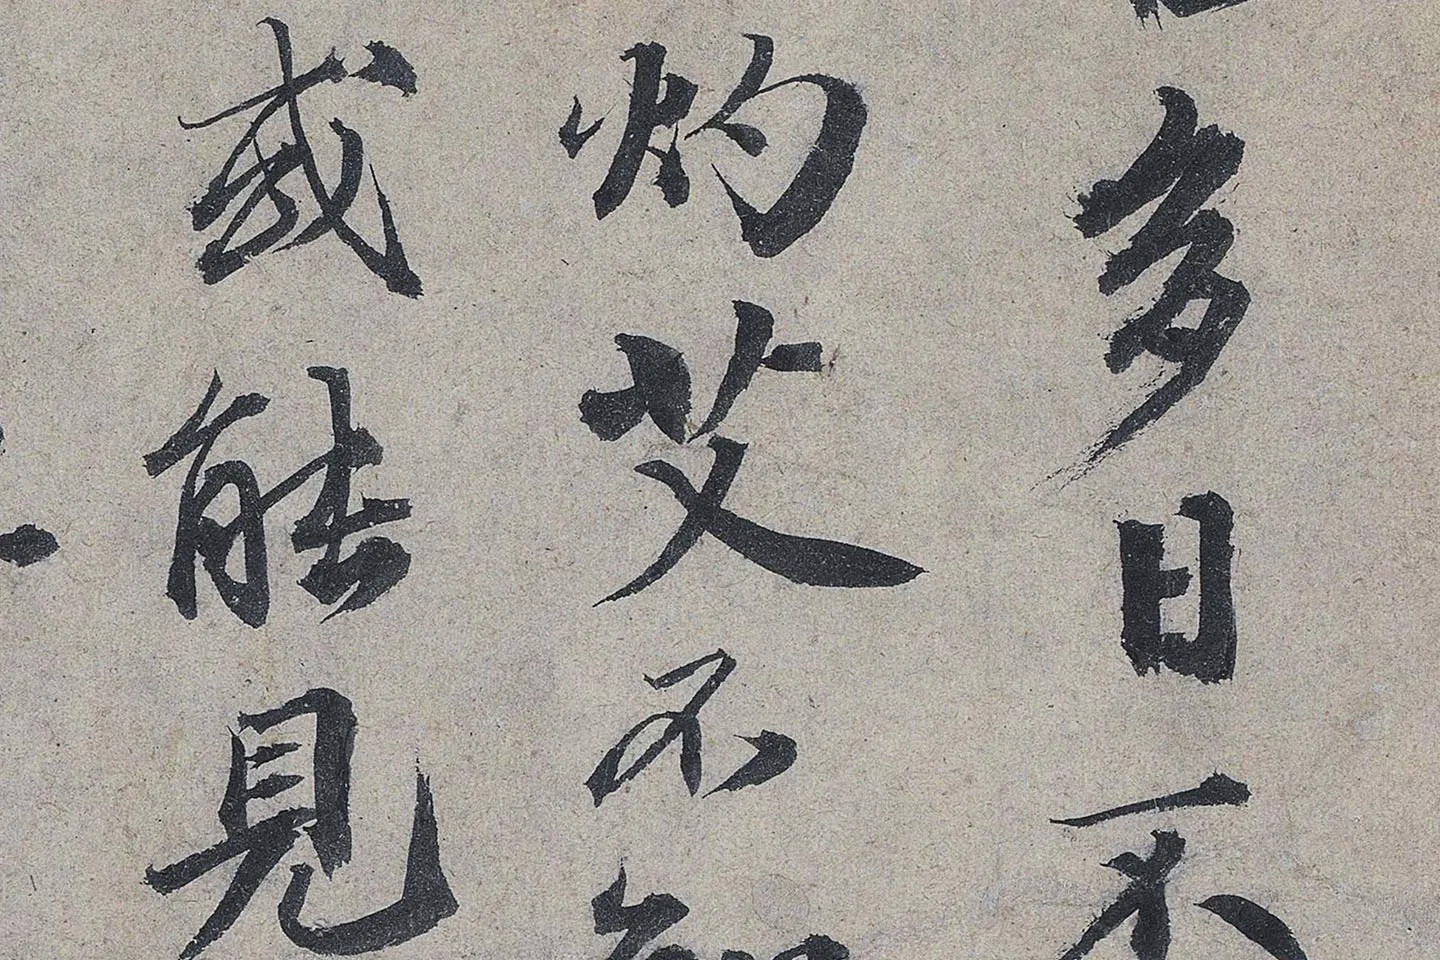 多日不
灼艾不知
或能見